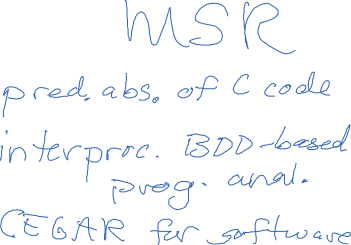 MSR
pred. abs. of C code
interproc. BDD-based
prog. anal.
CEGAR for software